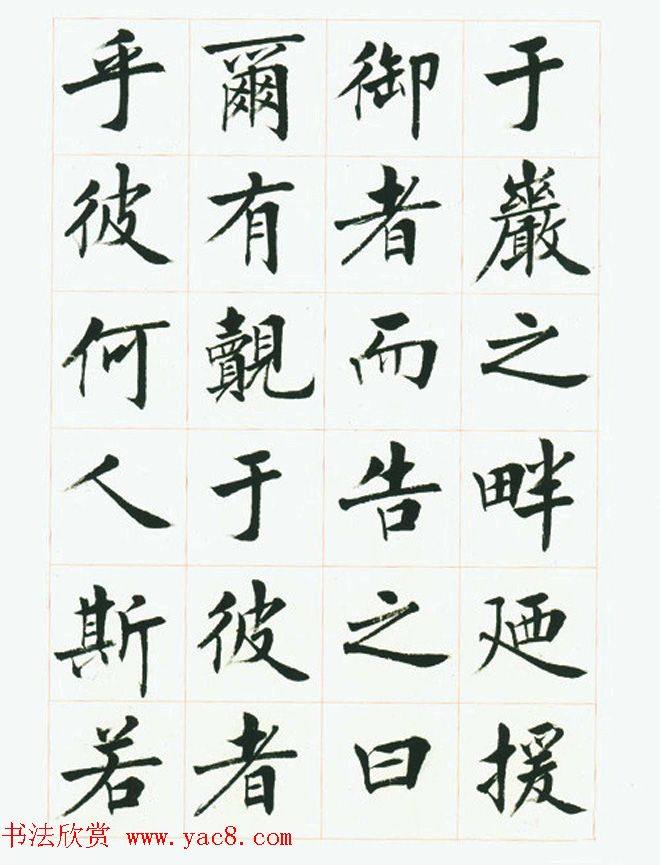 于巖之畔廼援
御者而告之曰
爾有覿于彼者
乎彼何人斯若
书法欣赏 www.yac8.com